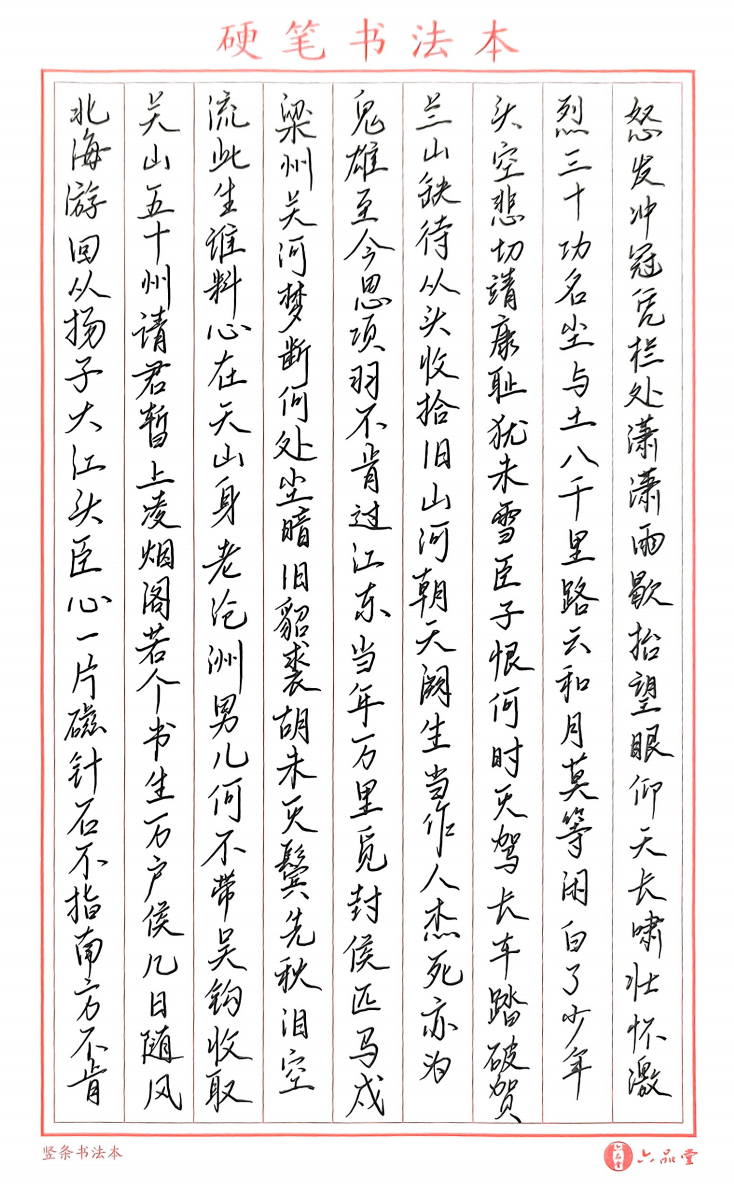 硬笔书法本
怒发冲冠凭栏处潇潇雨歇抬望眼仰天长啸壮怀激
烈三十功名尘与土八千里路云和月莫等闲白了少年
头空悲切靖康耻犹未雪臣子恨何时灭驾长车踏破贺
兰山缺待从头收拾旧山河朝天阙生当作人杰死亦为
鬼雄至今思项羽不肯过江东当年万里觅封侯匹马戍
梁州关河梦断何处尘暗旧貂裘胡未灭鬓先秋泪空
流此生谁料心在天山身老沧洲男儿何不带吴钩收取
关山五十州请君暂上凌烟阁若个书生万户侯几日随风
北海游回从扬子大江头臣心一片磁针石不指南方不肯
竖条书法本
六品堂